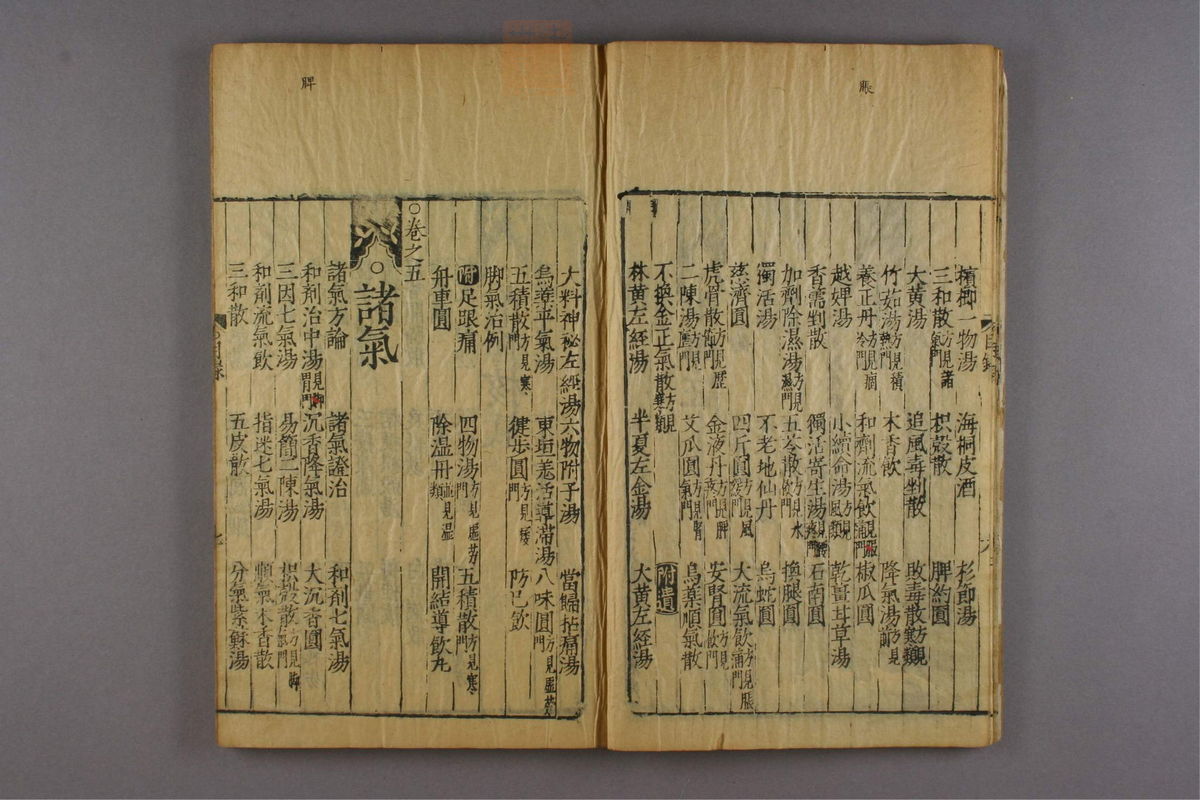 脹
檳榔一物湯 海桐皮酒 杉節湯
三和散方見諸氣門 枳殼散 脾約圓
大黃湯 追風毒剉散 敗毒散
竹茹湯方見積熱門 木香飲 降氣湯
養正丹方見痼冷門 和劑流氣飲 椒瓜圓
越婢湯 小續命湯 乾薑甘草湯
香需剉散 獨活寄生湯 石南圓
加劑除濕湯 五苓散 換腿圓
獨活湯 不老地仙丹 烏蛇圓
慈濟圓 四斤圓 大流氣飲
虎骨散方見歷節門 金液丹方見脾疼門 安腎圓
二陳湯 艾瓜圓 烏藥順氣散
不換金正氣散 附遺
林黃左經湯 半夏左金湯 大黃左經湯
脾
大料神祕左經湯 六物附子湯 當歸拈痛湯
烏藥平氣湯 東垣羌活導滯湯 八味圓方見虛勞門
五積散方見寒門 健步圓 防已飲
脚氣治例
附足跟痛 四物湯方見虛勞門 五積散方見寒門
舟車圓 除溫丹 開結導飲丸
○卷之五
○諸氣
諸氣方論 諸氣證治 和劑七氣湯
和劑治中湯 沉香降氣湯 大沉香圓
三因七氣湯 易簡二陳湯 枳殼散
和劑流氣飲 指迷七氣湯 順氣木香散
三和散 五皮散 分氣紫蘇湯